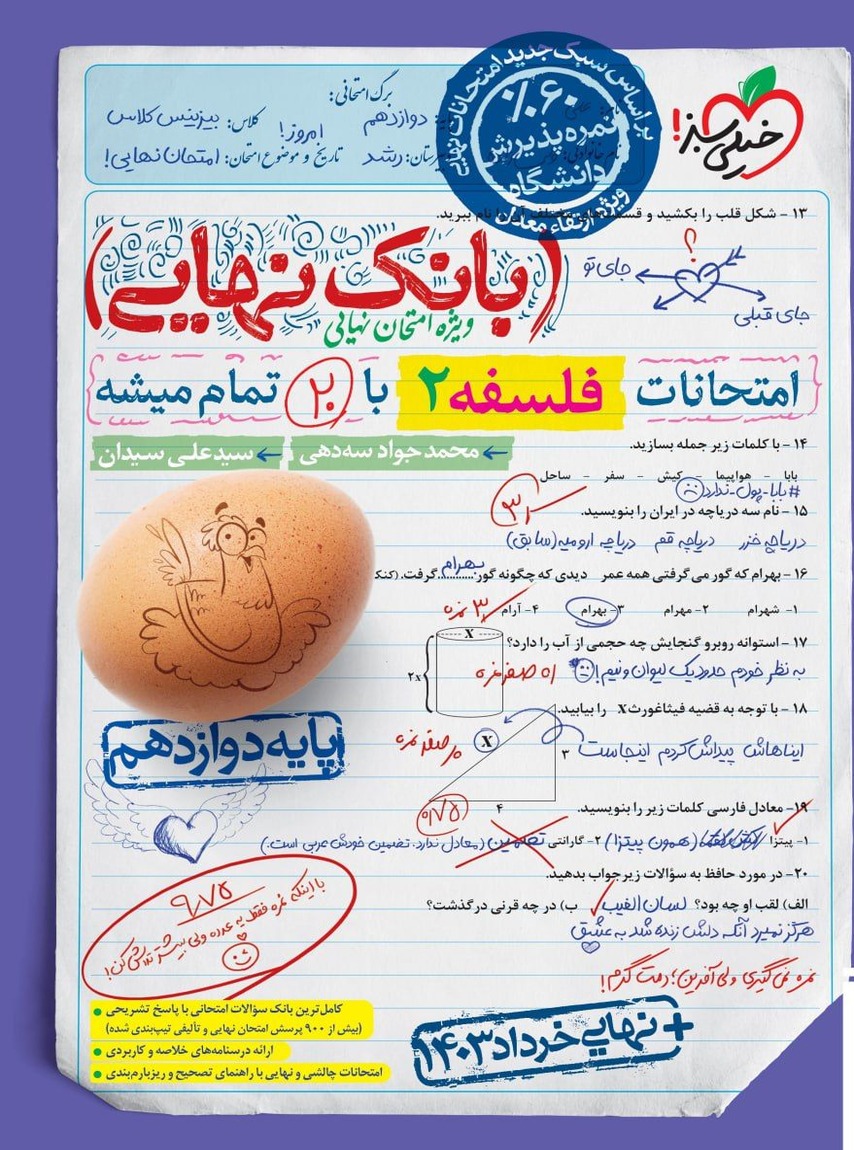 خیلی سبز!
براساس سبک جدید امتحانات نهایی
۶۰٪
نمره پذیرش
دانشگاه
ویژه ارتقاء معدل
برگ امتحانی:
دوازدهم
کلاس: بیزینس کلاس
رشد
تاریخ و موضوع امتحان: امروز! امتحان نهایی!
۱۳ - شکل قلب را بکشید و قسمت‌های مختلف آن را نام ببرید.
?
جای تو
جای قبلی
(بانک نهایی)
ویژه امتحان نهایی
امتحانات فلسفه ۲ با ۲۰ تمام میشه
محمد جواد سه‌دهی
سیدعلی سیدان
۱۴ - با کلمات زیر جمله بسازید.
بابا - هواپیما - کیش - سفر - ساحل
#بابا-پول-ندارد
۱۵ - نام سه دریاچه در ایران را بنویسید.
دریاچه خزر دریاچه قم دریاچه ارومیه (سابق)
۱۶ - بهرام که گور می‌گرفتی همه عمر دیدی که چگونه گور بهرام گرفت. (کنک
۱- شهرام ۲- مهرام ۳- بهرام ۴- آرام
۳ نمره
۱۷ - استوانه روبرو گنجایش چه حجمی از آب را دارد؟
به نظر خودم حدود یک لیوان و نیم!
صفر نمره
x
۲x
۱۸ - با توجه به قضیه فیثاغورث x را بیابید.
ایناهاش پیداش کردم اینجاست
صفر نمره
x
۳
۴
۰/۷۵
۱۹- معادل فارسی کلمات زیر را بنویسید.
۱- پیتزا (همون پیتزا) ۲- گارانتی تضمین (معادل ندارد. تضمین خودش عربی است.)
۲۰- در مورد حافظ به سؤالات زیر جواب بدهید.
الف) لقب او چه بود؟ لسان الغیب ب) در چه قرنی درگذشت؟
هرگز نمیرد آنکه دلش زنده شد به عشق
نمره نمی‌گیری ولی آفرین؛ دمت گرم!
پایه دوازدهم
۹/۷۵
با اینکه نمره فقط یه عدده ولی بیشتر تلاش کن!
کامل‌ترین بانک سؤالات امتحانی با پاسخ تشریحی
(بیش از ۹۰۰ پرسش امتحان نهایی و تألیفی تیپ‌بندی شده)
ارائه درسنامه‌های خلاصه و کاربردی
امتحانات چالشی و نهایی با راهنمای تصحیح و ریزبارم‌بندی
+ نهایی خرداد ۱۴۰۳